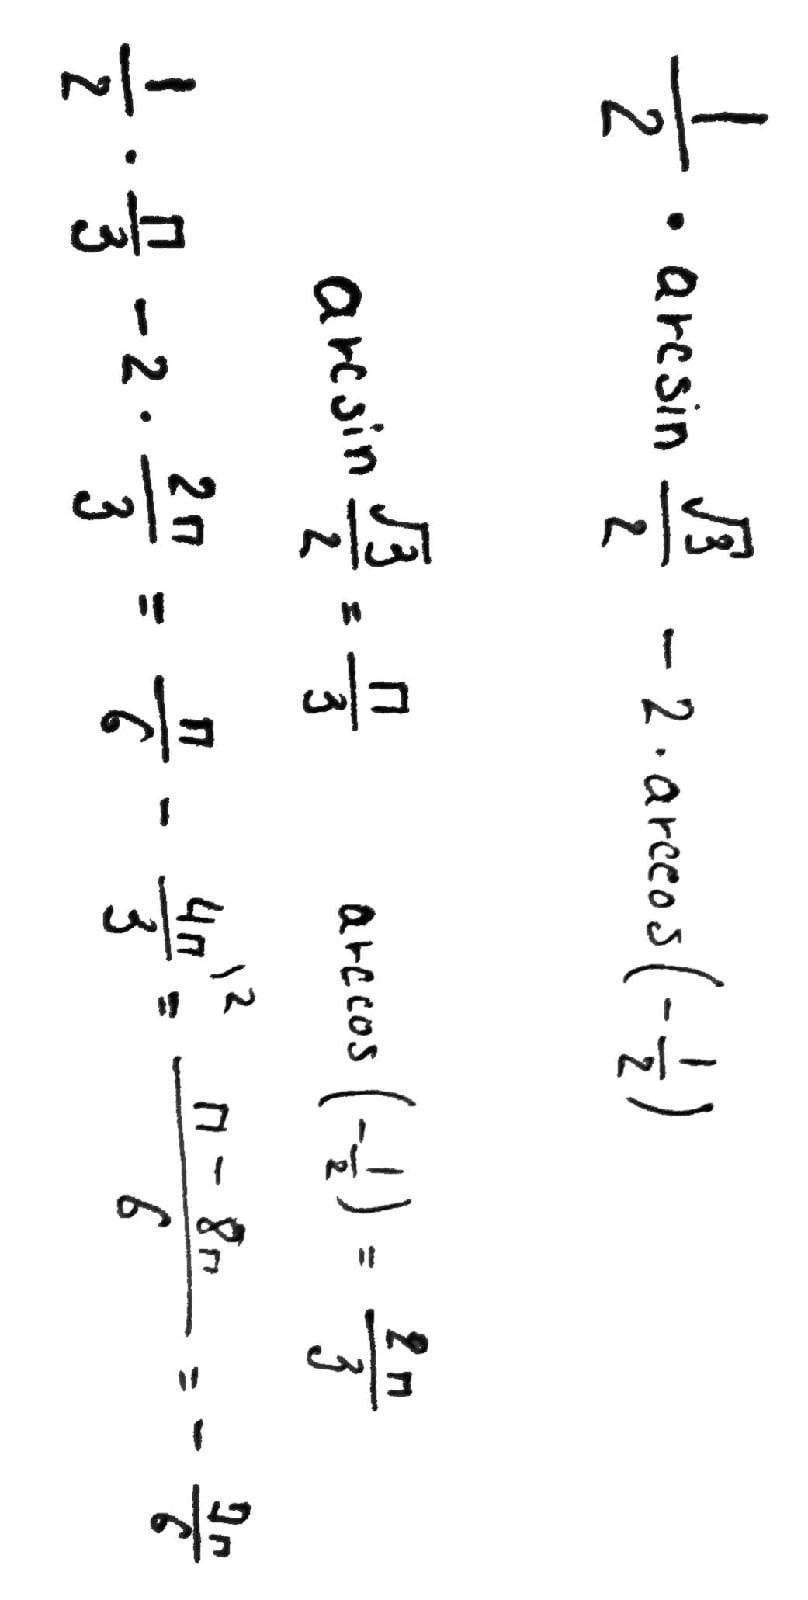 1/2 · arcsin √3/2 - 2 · arccos(-1/2)
arcsin √3/2 = π/3 arccos(-1/2) = 2π/3
1/2 · π/3 - 2 · 2π/3 = π/6 - 4π/3 )2 = π - 8π/6 = - 7π/6